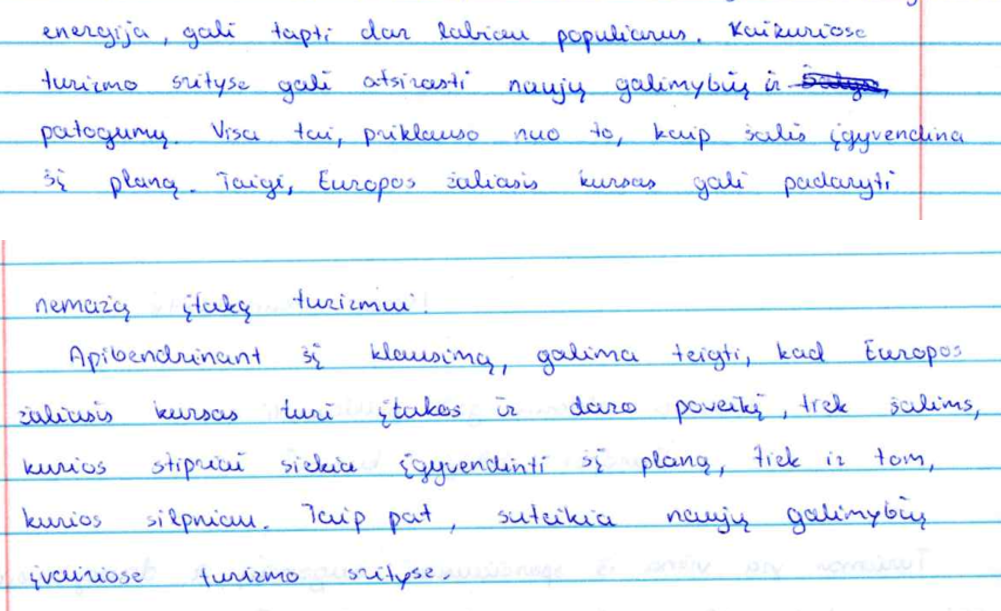 energija, gali tapti dar labiau populiarus. Kaikuriose
turizmo srityse gali atsirasti naujų galimybių ir
patogumų. Visa tai, priklauso nuo to, kaip šalis įgyvendina
šį planą. Taigi, Europos žaliasis kursas gali padaryti
nemažą įtaką turizmui.
Apibendrinant šį klausimą, galima teigti, kad Europos
žaliasis kursas turi įtakos ir daro poveikį, tiek šalims,
kurios stipriai siekia įgyvendinti šį planą, tiek ir tom,
kurios silpniau. Taip pat, suteikia naujų galimybių
įvairiose turizmo srityse.